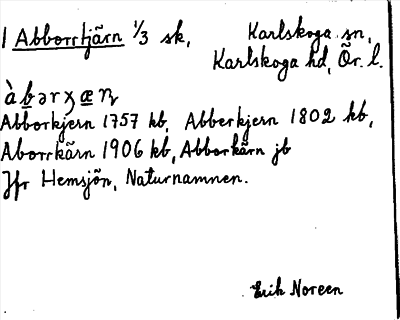 1 Abborrtjärn 1/3 sk, Karlskoga sn,
Karlskoga hd, Ör. l.
Abborkjern 1757 kb, Abberkjern 1802 kb,
Aborrkärn 1906 kb, Abborkärn jb
Jfr Hemsjön, Naturnamnen.
Erik Noreen